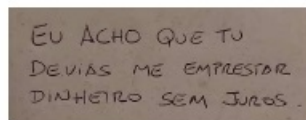 EU ACHO QUE TU
DEVIAS ME EMPRESTAR
DINHEIRO SEM JUROS.